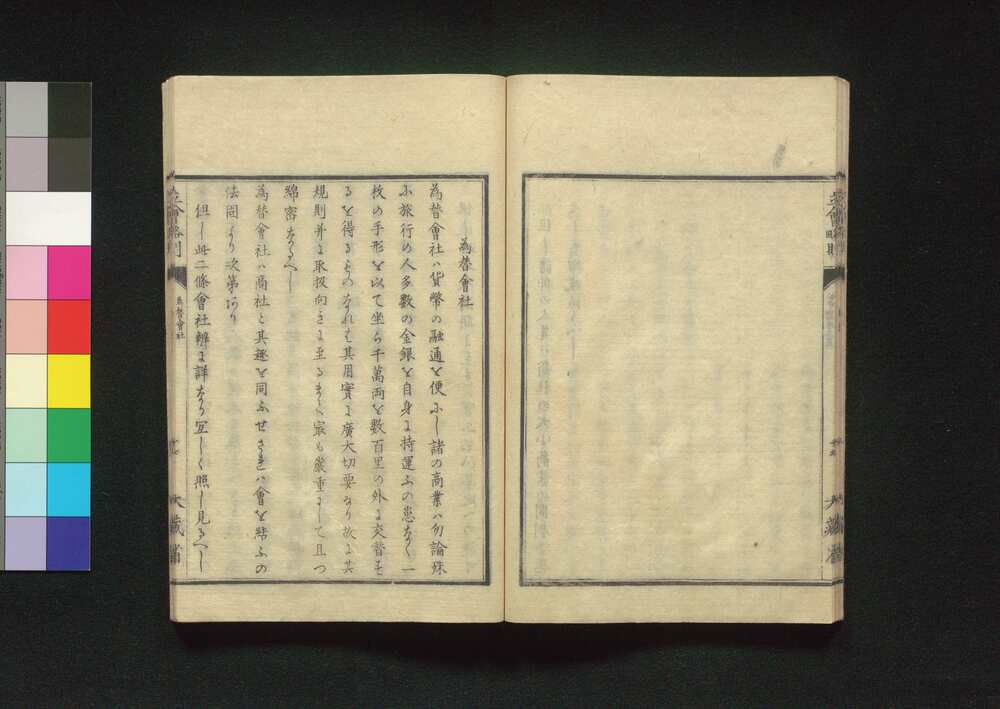 為替會社
為替會社ハ貨幣の融通を便ふし諸の商業ハ勿論殊
ふ旅行の人多数の金銀を自身に持運ふの患なく一
枚の手形を以て坐ら千萬両を數百里の外に交替を
るを得るものなれは其用實に廣大切要なり故に其
規則并に取扱向きに至るまて最も嚴重にして且つ
綿密なるへし
為替會社ハ商社と其趣を同ふせされハ會を結ふの
法固より次第あり
但し此二條會社辨に詳なり宜しく照し見るへし
立會略則
為替會社
大藏省
立會略則
大藏省